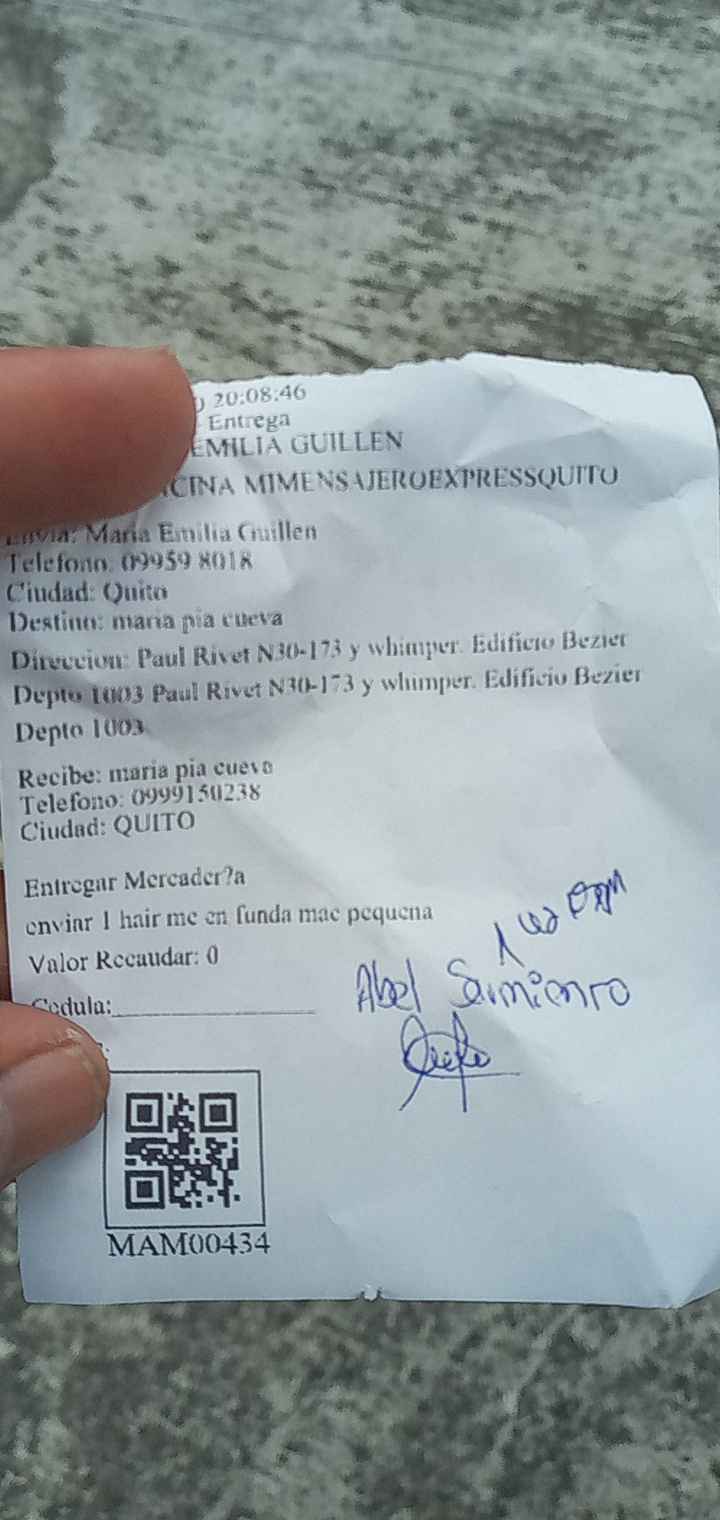 20:08:46
Entrega
EMILIA GUILLEN
CINA MIMENSAJEROEXPRESSQUITO
Envia: Maria Emilia Guillen
Telefono: 09959 8018
Ciudad: Quito
Destino: maria pia cueva
Direccion: Paul Rivet N30-173 y whimper. Edificio Bezier
Depto 1003 Paul Rivet N30-173 y whimper. Edificio Bezier
Depto 1003
Recibe: maria pia cueva
Telefono: 0999150238
Ciudad: QUITO
Entregar Mercader?a
enviar 1 hair me en funda mac pequena
Valor Recaudar: 0
Cedula:
Abel Sarmiento
MAM00434